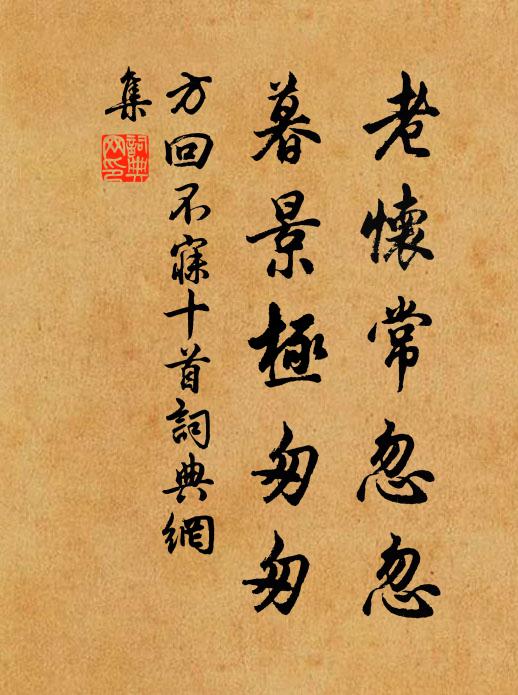 老懷常忽忽
暮景極匆匆
方回不寐十首詞典網
集
詞典網印